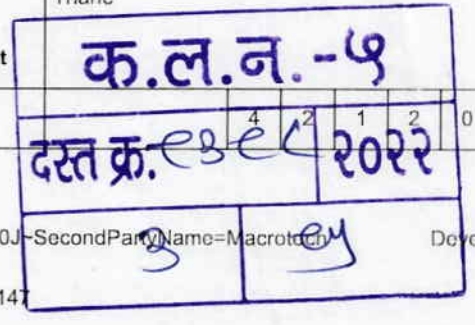 Thane
t
क.ल.न.-५
4 2 1 2 0
दस्त क्र. ९३९८ २०२२
0J~SecondPartyName=Macrotech Deve
३ ९५
147